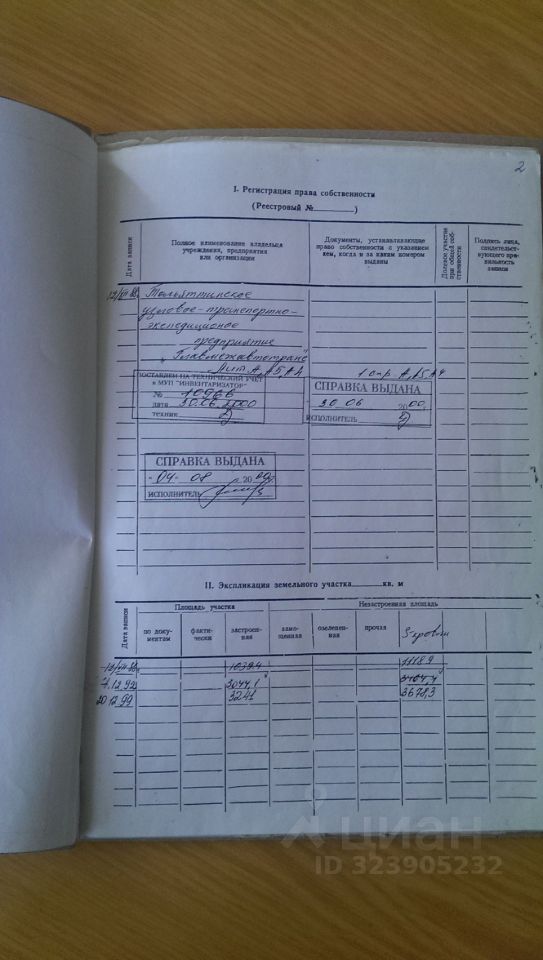 2
I. Регистрация права собственности
(Реестровый № )
Дата записи
Полное наименование владельца учреждения, предприятия или организации
Документы, устанавливающие право собственности с указанием кем, когда и за каким номером выданы
Долевое участие при общей собственности
Подпись лица, свидетельствующего правильность записи
Тольяттинское
узловое-транспортно-
экспедиционое
предприятие
"Главмежавтотранс"
Лит. А, А5, А4
ПОСТАВЛЕН НА ТЕХНИЧЕСКИЙ УЧЕТ
в МУП "ИНВЕНТАРИЗАТОР"
№ 10966
дата 30.06.2000
техник
СПРАВКА ВЫДАНА
30 06 2000
ИСПОЛНИТЕЛЬ
СПРАВКА ВЫДАНА
04 08 20
ИСПОЛНИТЕЛЬ
II. Экспликация земельного участка кв. м
Дата записи
Площадь участка
Незастроенная площадь
по документам
фактически
застроенная
замощенная
озелененная
прочая
1039,4
1118,9
7.12.92
3044,1
20.12.99
3241
3678,3
ЦИАН
ID 323905232